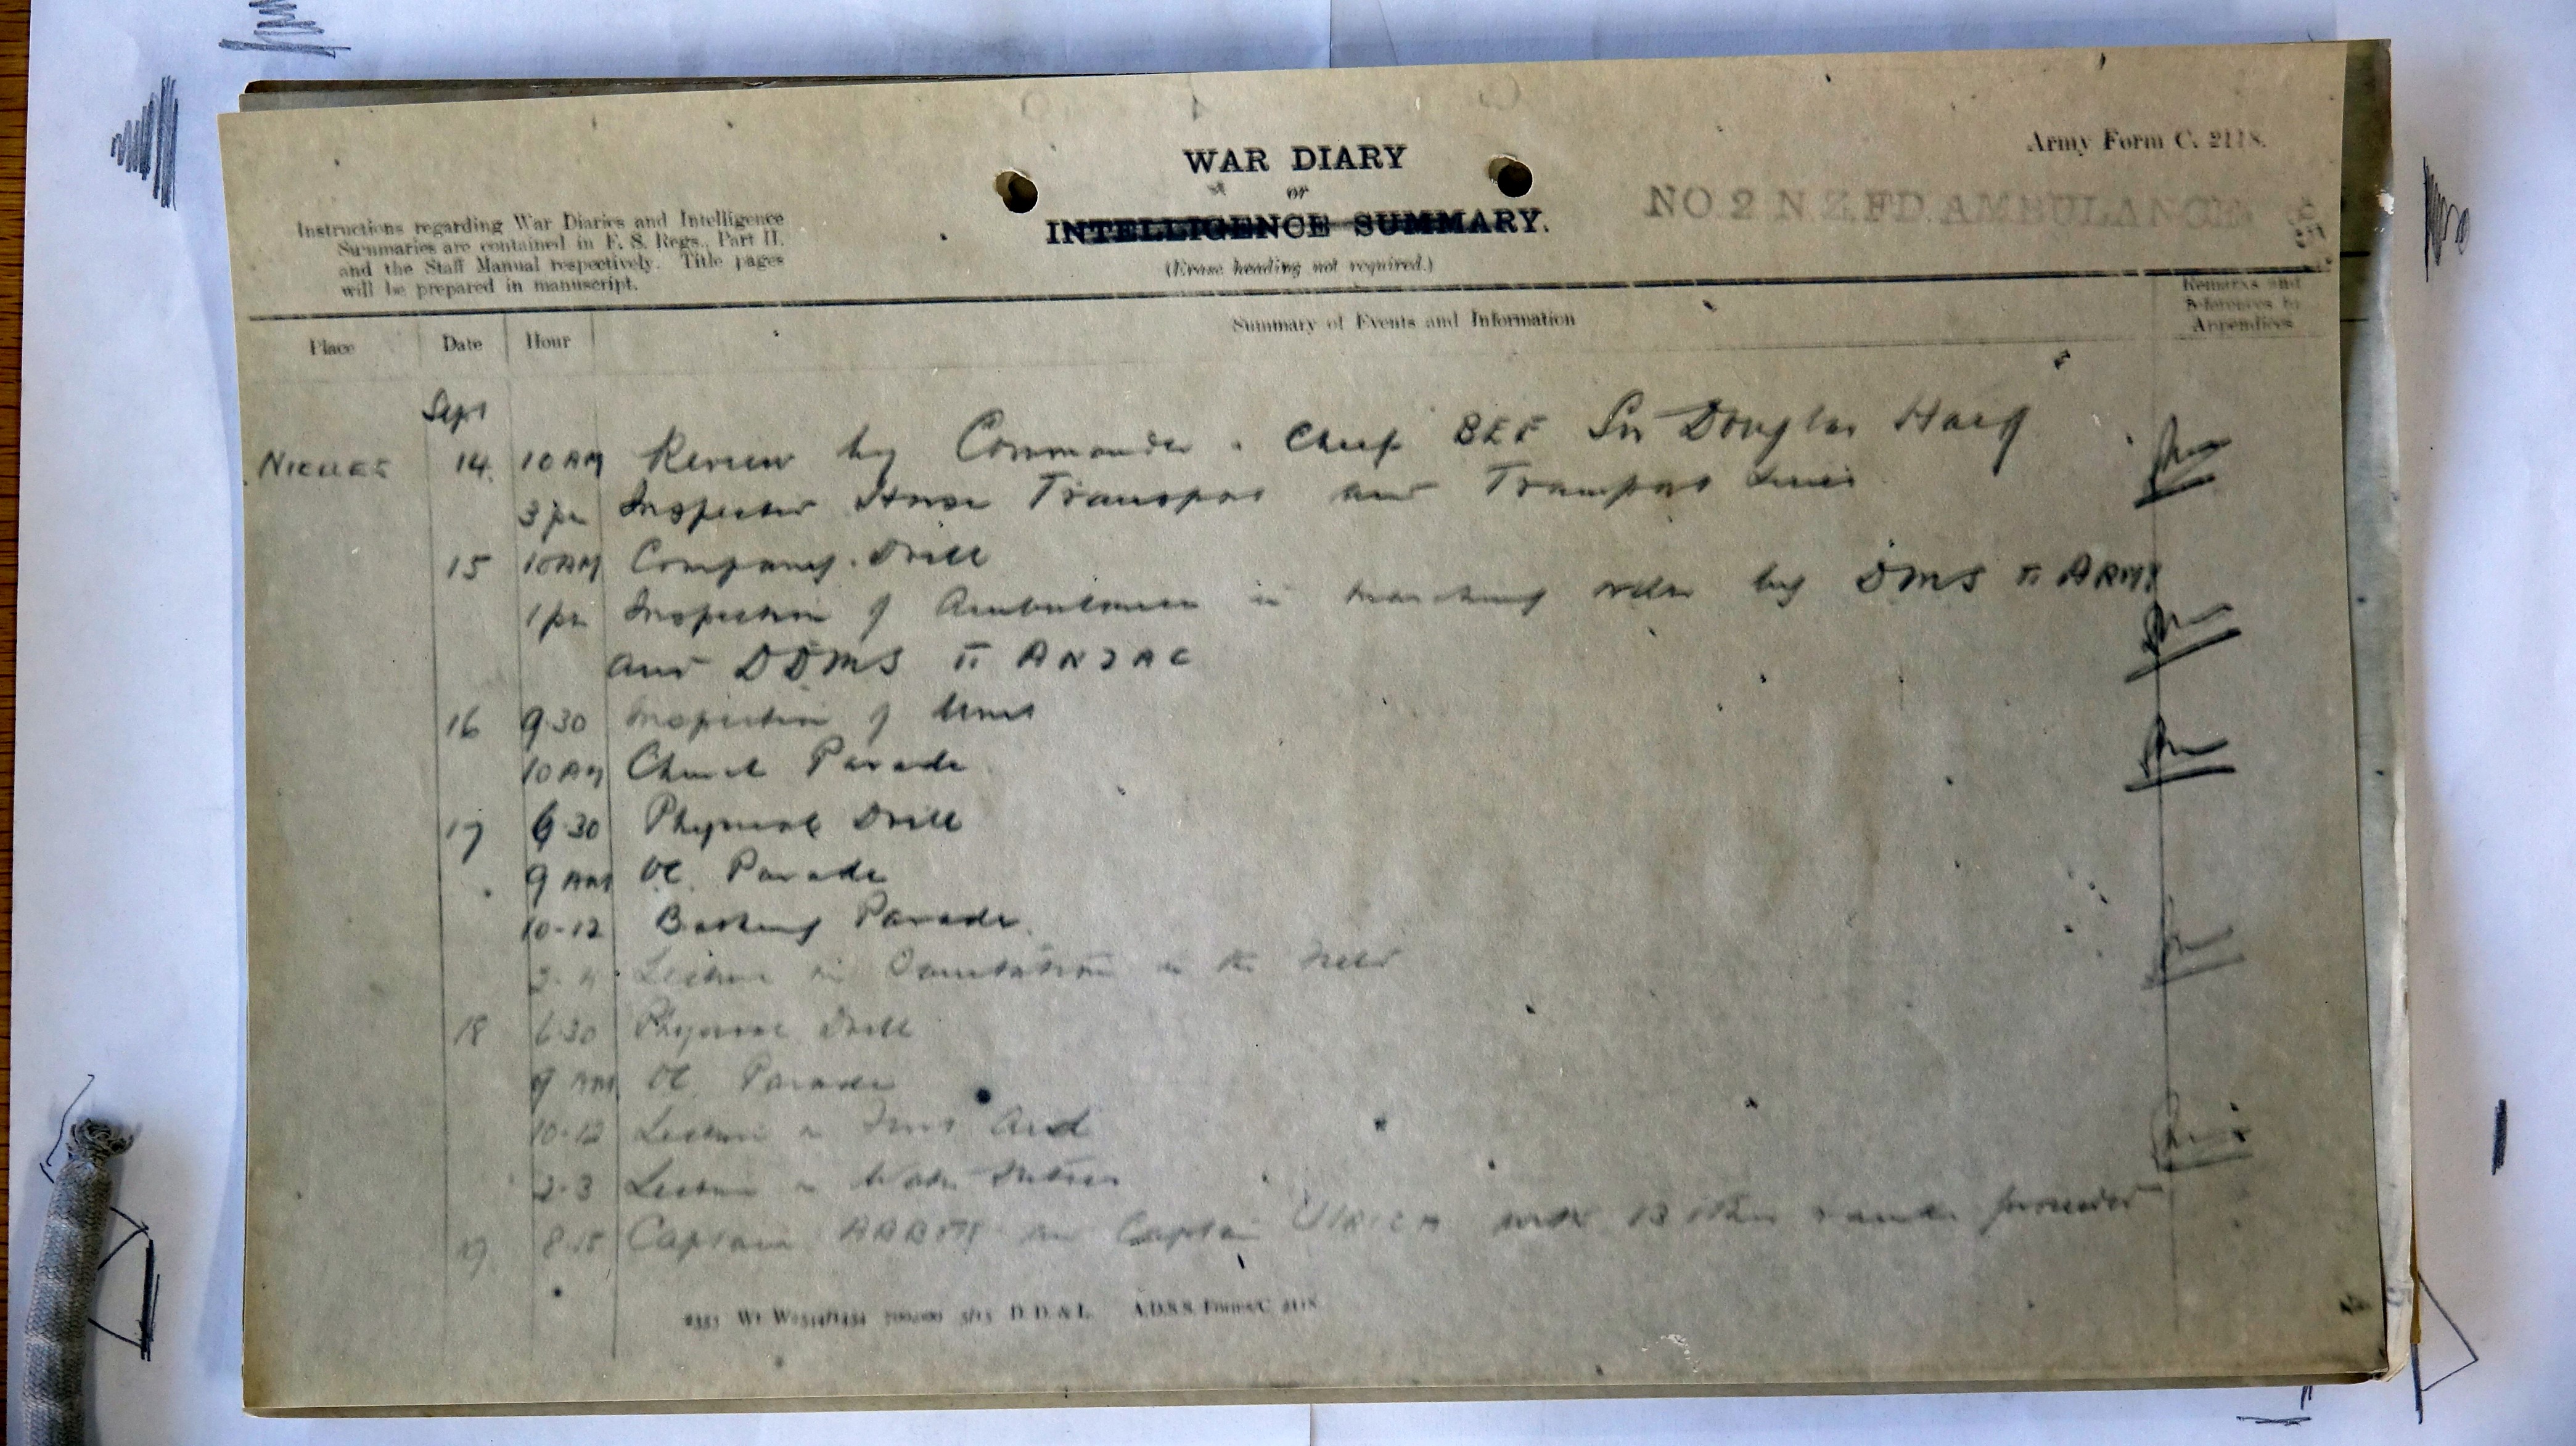 Army Form C. 2118.
WAR DIARY
or
INTELLIGENCE SUMMARY.
(Erase heading not required.)
NO 2 N Z. FD. AMBULANCE
Instructions regarding War Diaries and Intelligence
Summaries are contained in F. S. Regs., Part II.
and the Staff Manual respectively. Title pages
will be prepared in manuscript.
Place Date Hour Summary of Events and Information
Remarks and
References to
Appendices
Sept
NIELLES 14. 10 AM Review by Commander . Chief BEF Sir Douglas Haig
3 pm Inspected Horse Transport and Transport Lines
15 10AM Company Drill
1 pm Inspection of Ambulances in marching order by DMS II ARMY
and DDMS II ANZAC
16 9.30 Inspection of
10 AM Church Parade
17 6.30 Physical Drill
9 AM OC. Parade
10-12 Bathing Parade.
2-4 Lecture on Sanitation in the Field
18 6.30 Physical Drill
9 AM OC. Parade
10-12 Lecture on First Aid
2-3 Lecture on Water Duties
19 8.15 Captain and Captain ULRICH with 13 other ranks proceeded
D. D. & L. A.D.S.S./Forms/C. 2118.